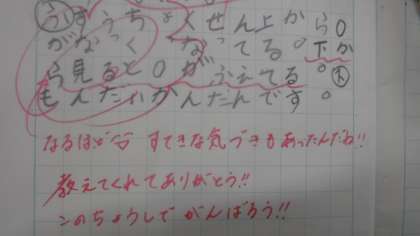 うは うちょくせん上から0
がなっくなってる。下か
ら見ると0がふえてる。
もんだいかんたんです。
なるほど!! すてきな気づきもあったんだね!!
教えてくれてありがとう!!
このちょうしでがんばろう!!